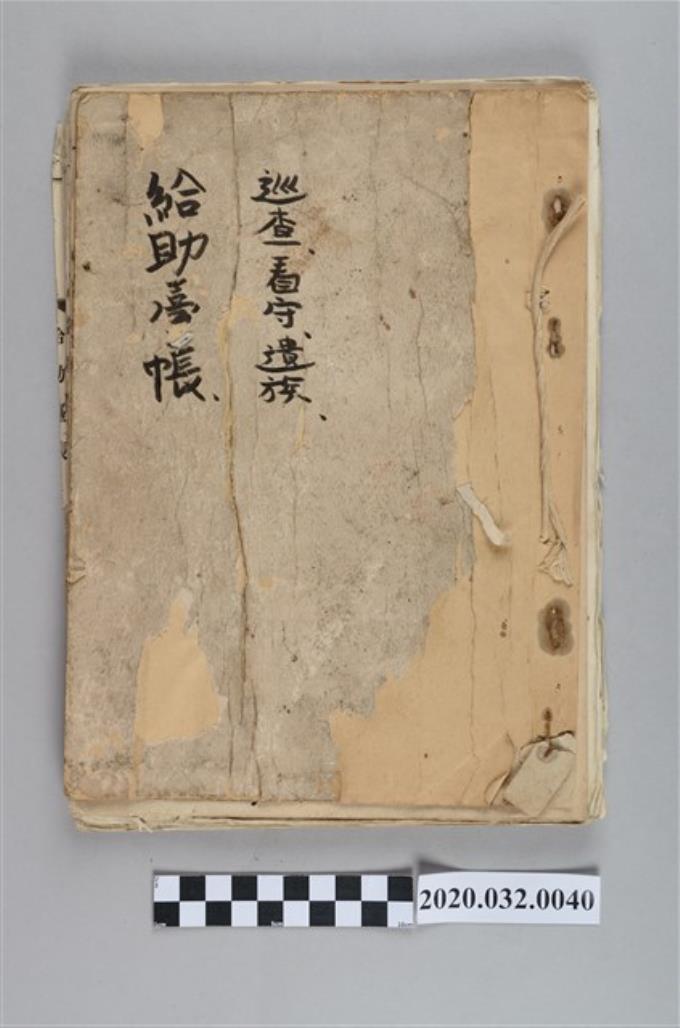 巡查、看守、遺族、
給助臺帳、
2020.032.0040